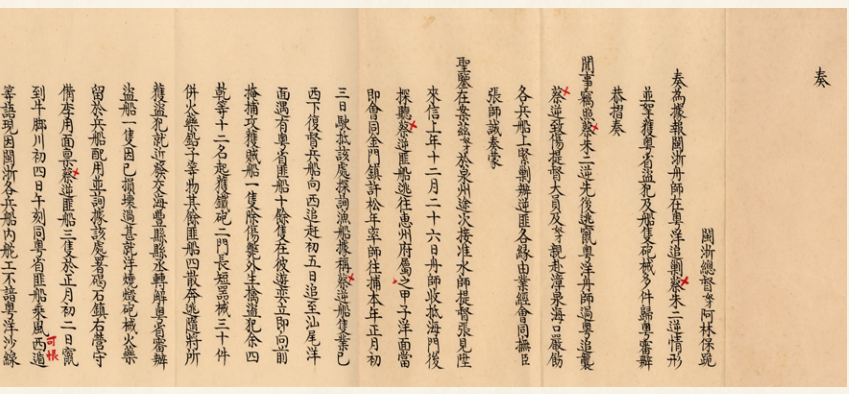 奏
閩浙總督奴才阿林保跪
奏為據報閩浙舟師在粵洋追剿蔡朱二逆情形
並拏獲粵省盜犯及船隻砲械多件歸粵審辦
恭摺奏
聞事竊照蔡朱二逆先後逃竄粵洋舟師過粵追襲
蔡逆致傷提督大員及奴才親赴漳泉海口嚴飭
各兵船上緊剿辦逆匪各緣由業經會同撫臣
張師誠奏蒙
聖鑒在案茲奴才於泉州途次接准水師提督張見陞
來信上年十二月二十六日舟師收抵海門後
探聽蔡逆匪船逃往惠州府屬之甲子洋面當
即會同金門鎮許松年率師往捕本年正月初
三日駛抵該處探詢漁船據稱蔡逆船隻業已
西下復督兵船向西追趕初五日追至汕尾洋
面遇有粵省匪船十餘隻在彼遊奕立即向前
掩捕攻獲賊船一隻除傷斃外生擒盜犯余四
乾等十二名起獲鐵砲二門長短器械三十件
併火藥鉛子等物其餘匪船四散奔逃隨將所
獲盜犯就近發交海豐縣縣丞轉解粵省審辦
盜船一隻因已損壞過甚就洋燒燬砲械火藥
留於兵船配用並詢據該處署碣石鎮右營守
備李用面稟蔡逆匪船三隻於正月初二日竄
到牛腳川初四日午刻同粵省匪船乘風西遁
可恨
等語現因閩浙各兵船內舵工不諳粵洋沙線